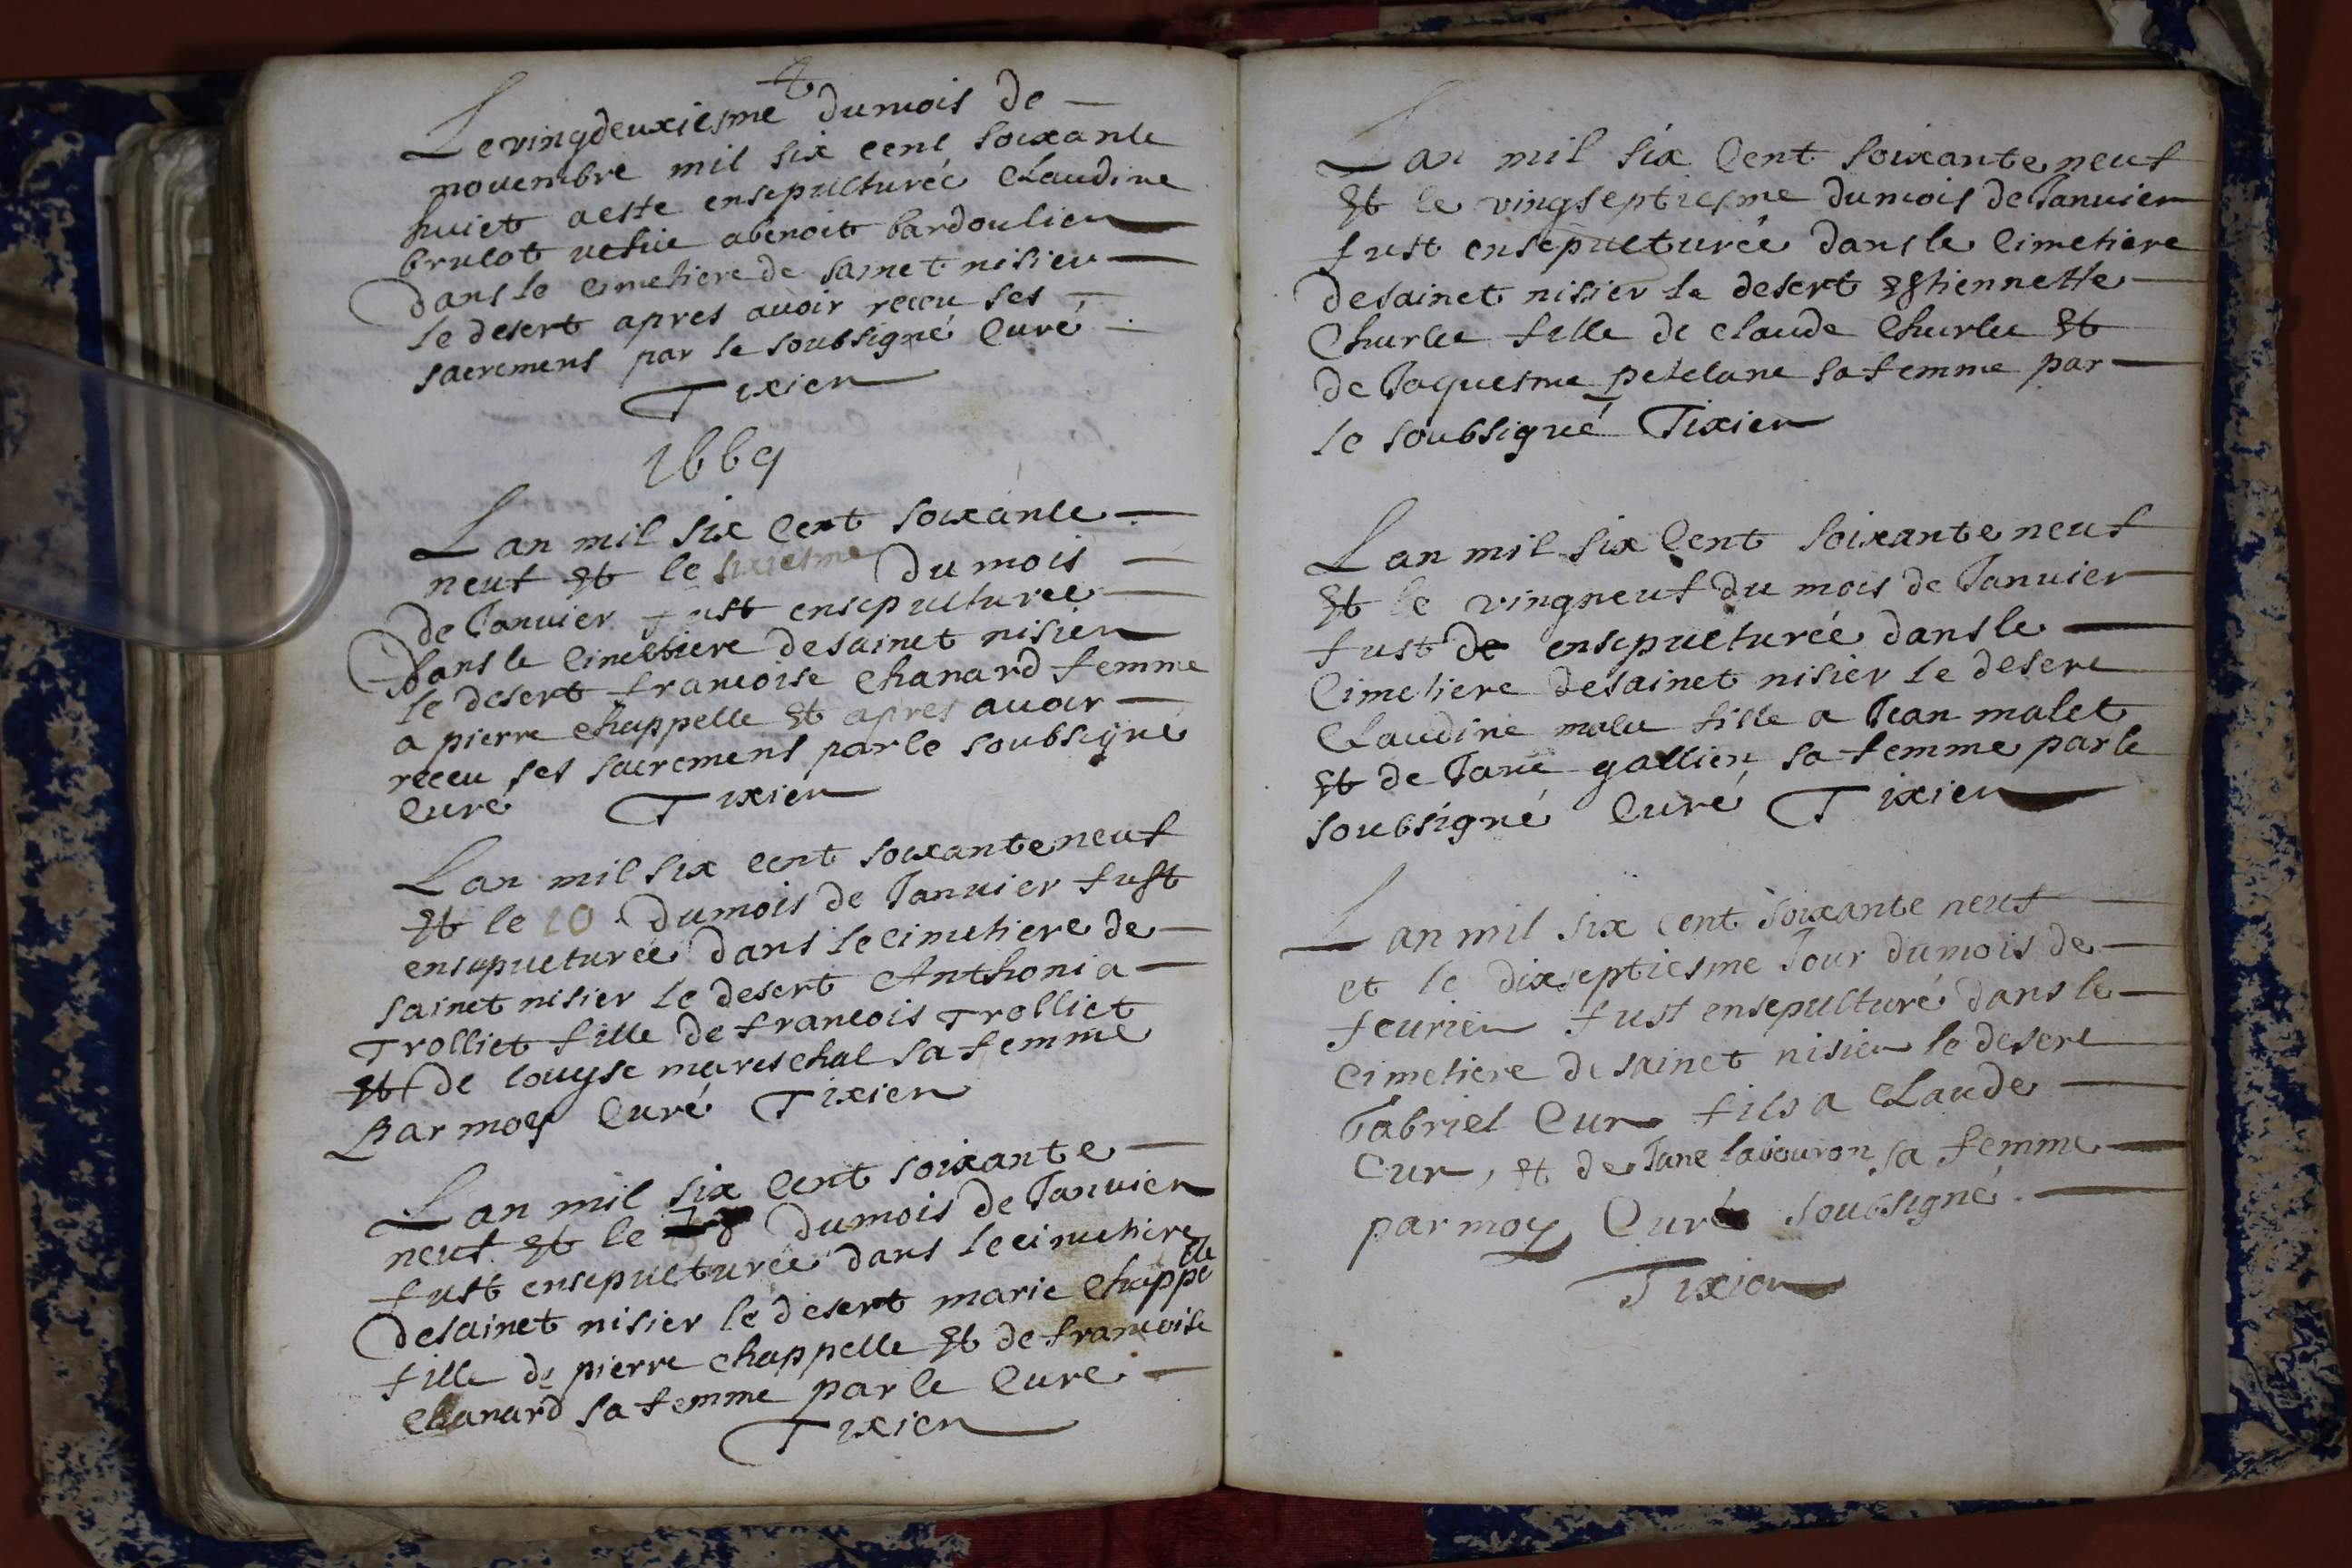 Le vingdeuxiesme du mois de
novembre mil six cent soixante
huict a este ensepulturée Claudine
brulot a benoit bardoulien
dans le cimetiere de sainct nisier
le desert apres avoir receu ses
sacremens par le soubsigné Curé
Tixier
1669
Lan mil six Cent soixante
neuf Et le sixiesme du mois
de Janvier fust ensepulturee
Dans le Cimettiere de sainct nisier
le desert francoise Chanard femme
a pierre Chappelle Et apres avoir
receu ses sacremens par le soubsigné
Curé Tixier
Lan mil six cent soixante neuf
Et le 10 du mois de Janvier fust
ensepulturée dans le cimetiere de
sainct nisier le desert Anthonia
Trolliet fille de francois Trolliet
Et de louyse mareschal sa femme
Par moy Curé Tixier
Lan mil six Cent soixante
neuf Et le 18 du mois de Janvier
fust ensepulturée dans le cimetiere
de sainct nisier le desert marie Chappelle
fille de pierre Chappelle Et de francoise
Chanard sa femme par le Curé
Tixier
Lan mil six Cent soixante neuf
Et le vingseptiesme du mois de Janvier
fust ensepulturée dans le Cimetiere
de sainct nisier le desert Estiennette
Churlet fille de Claude Churlet Et
de Jaquesme petelane sa femme par
le soubsigné Tixier
Lan mil six Cent soixante neuf
Et le vingneuf du mois de Janvier
fust de ensepulturée dans le
Cimetiere de sainct nisier le desert
Claudine malet fille a Jean malet
Et de Jane gallien sa femme par le
soubsigné Curé Tixier
Lan mil six Cent soixante neuf
et le dixseptiesme Jour du mois de
fevrier fust ensepulturé dans le
Cimetiere de sainct nisier le desert
Gabriel Cur fils a Claude
Cur, et de Jane lavouron sa femme
par moy Curé soubsigné.
Tixier